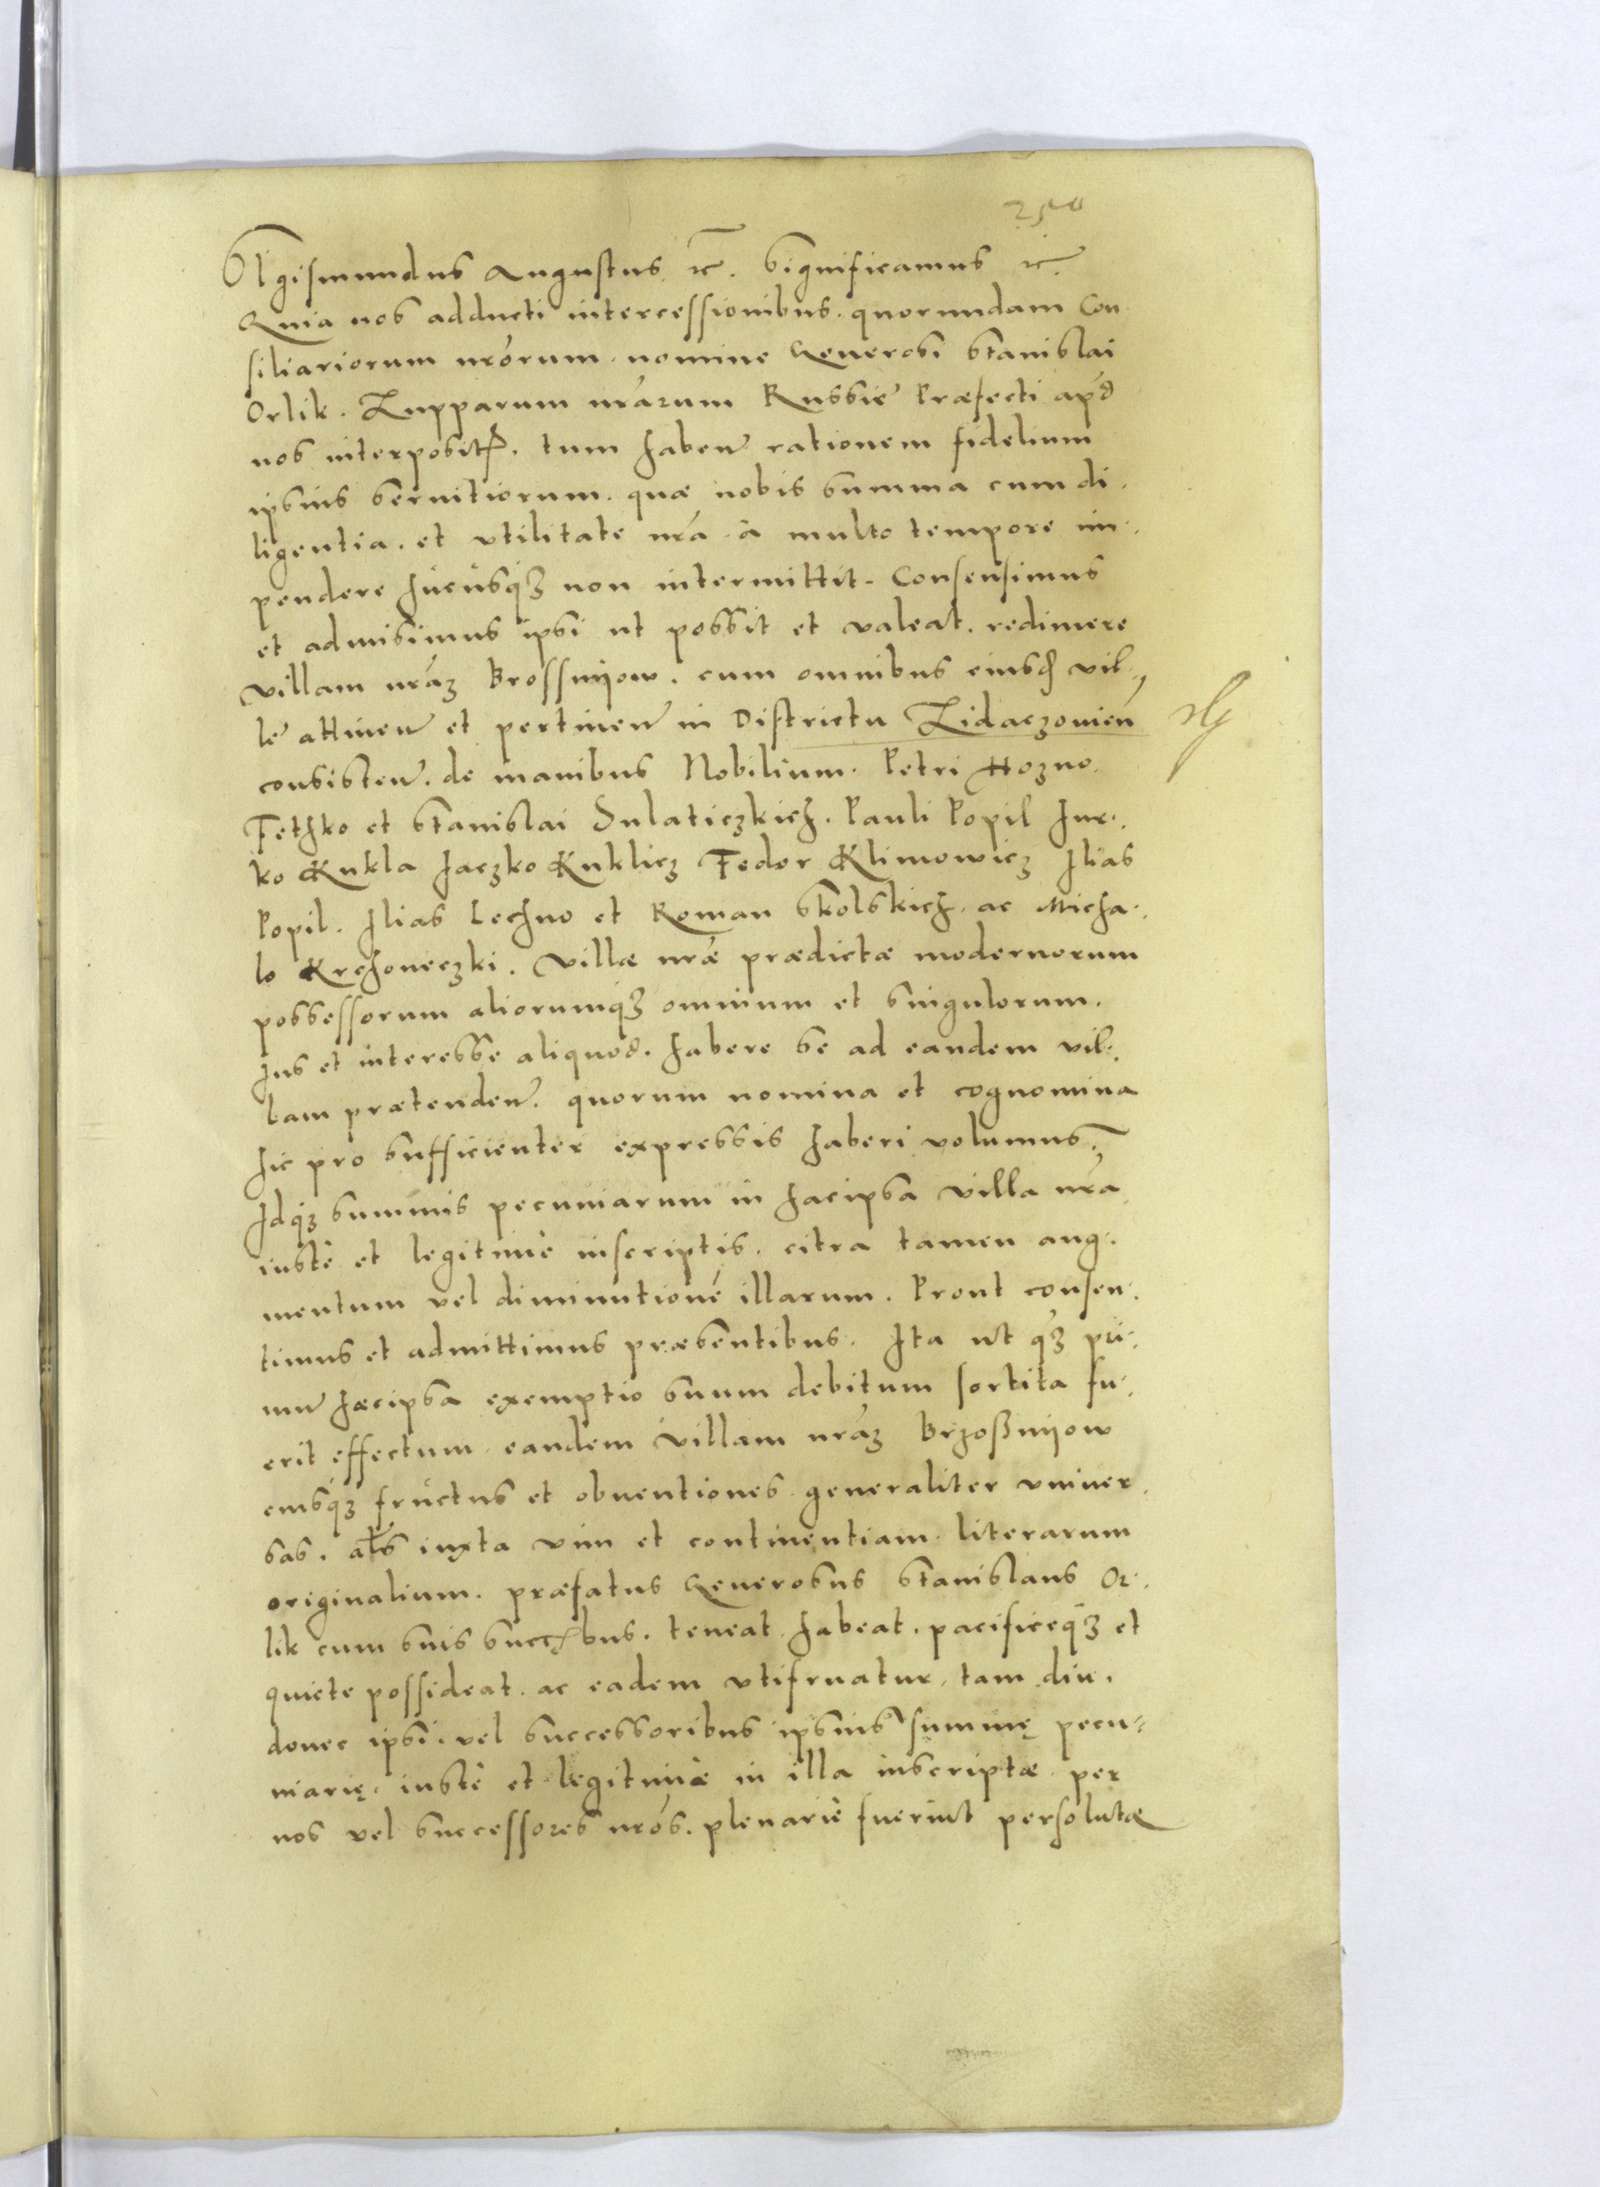 SIgismundus Augustus etc. Significamus etc.
Quia nos adducti intercessionibus quorundam Con-
siliariorum nrorum nomine Generosi Stanislai
Orlik. Zupparum nrarum Russiæ Præfecti apud
nos interpositis. tum haben rationem fidelium
ipsius servitiorum. quæ nobis summa cum di-
ligentia. et utilitate nra à multo tempore im-
pendere hucusq3 non intermittit. Consensimus
et admisimus ipsi ut possit et valeat. redimere
villam nram Brossnijow. cum omnibus eiusd vil-
le attinen et pertinen in Districtu Zidaczovien
consisten. de manibus Nobilium. Petri Hozno.
Fethko et Stanislai Dulaticzkich. Pauli Popil Jur-
ko Kukla Jaczko Kuklicz Fedor Klimowicz Ilias
Popil. Ilias Lechno et Roman Skolskich. ac Micha-
lo Krchoneczki. Villæ nræ prædictæ modernorum
possessorum aliorumq3 omnium et singulorum.
Jus et interesse aliquod. habere se ad eandem vil-
lam prætenden. quorum nomina et cognomina
hic pro sufficienter expressis haberi volumus.
Idq3 summis pecuniarum in hacipsa villa nra
iustè et legitimè inscriptis. citra tamen aug-
mentum vel diminutioné illarum. Prout consen-
timus et admittimus præsentibus. Ita ut q3 pri-
mu hæcipsa exemptio suum debitum sortita fu-
erit effectum eandem villam nram Brzoßnijow
eiusq3 fructus et obventiones generaliter univer-
sas. als iuxta vim et continentiam literarum
originalium. præfatus Generosus Stanislaus Or-
lik cum suis succbus. teneat habeat. pacificeq3 et
quiete possideat. ac eadem utifruatur. tam diu.
donec ipsi. vel successoribus ipsius summę pecu-
niarię. iustè et legitimè in illa inscriptæ per
nos vel successores nros. plenariè fuerint persolutæ